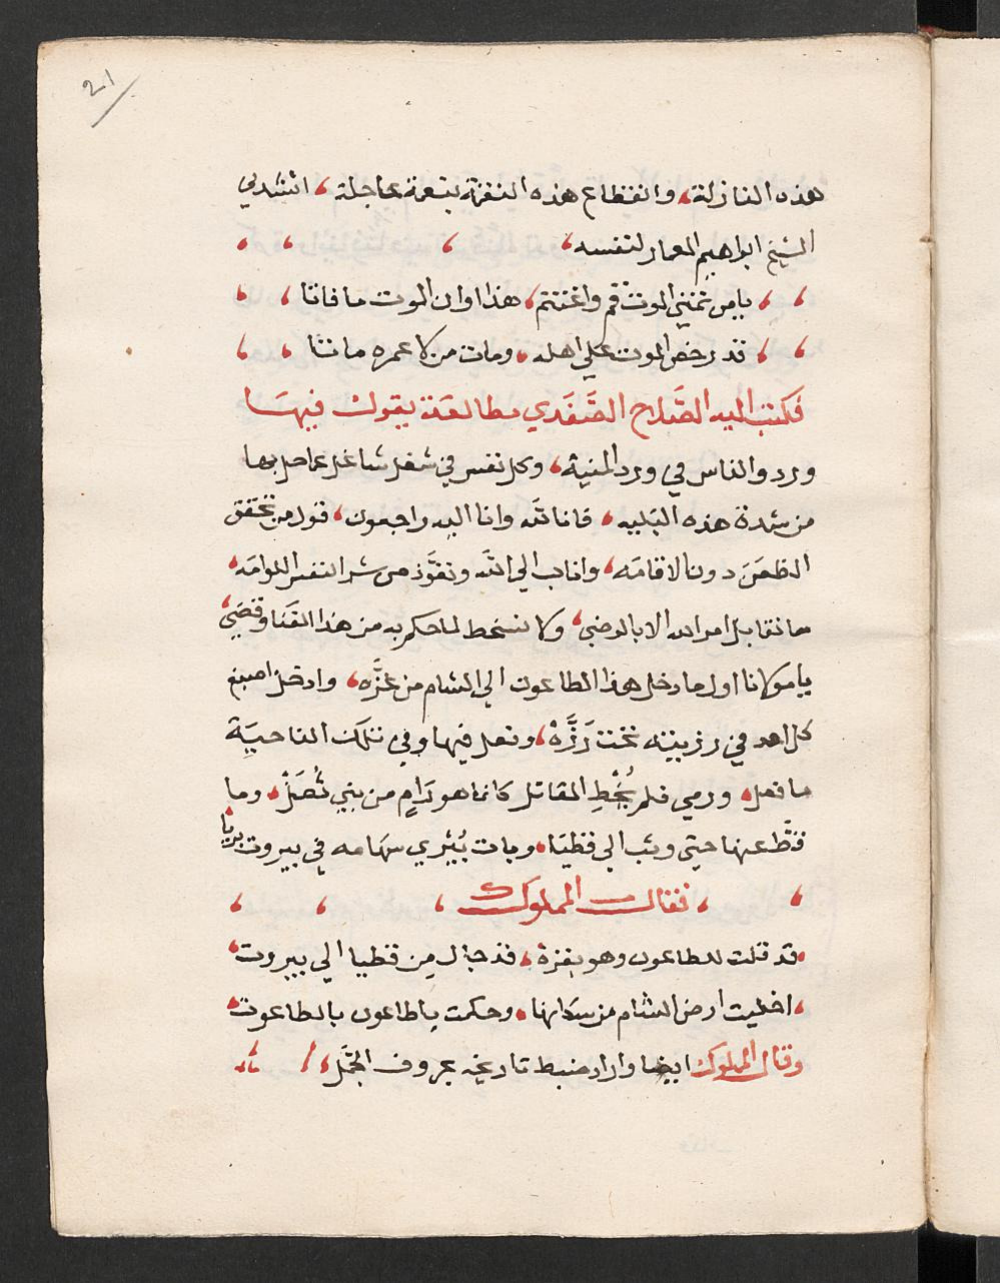 21
هذه النازلة، وانقطاع هذه النغزة بنعمة عاجلة، انشدني
الشيخ ابراهيم المعمار لنفسه،
يامن تمنى الموت قم واغتنم، هذا اوان الموت ما فاتا،
قد رخص الموت على اهله، ومات من لا عمره ماتا،
فكتب اليه الصَّلاح الصَّفَدي مطالعة يقول فيها
ورد والناس في ورد المنية، وكل نفس في شغل شاغل عما حل بها
من شدة هذه البَليه، فانالله وانا اليه راجعون، قول من تحقق
الظعَن دون الاقامَه، واناب الي الله وتعوَّذ من شر النفس اللوامَه،
ما نقابل امر الله الا بالرضى، ولا نسخط لما حكم به من هذا القنا وقضَى،
يامولانا اول ما دخل هذا الطاعون الي الشام من غزَّه، وادخل اصبع
كل احد في رزبيته تحت رَزَّهْ، وفعل فيها وفي تلك الناحيَة
ما فعل، ورمي فلم يُخْطِ المقاتل كانما هو رَامٍ من بني ثُعَلْ، وما
قطّ عنها حتى وثب الي قطيَا، وبات يُبْري سهَامه في بيروت بريا،
فقال المملوك
قد قلت للطاعون وهو بغزة، قد جال من قطيا الي بيروت،
اخليت ارض الشام من سكانها، وحكمت ياطاعون بالطاعوت،
وقال المملوك ايضا واراد ضبط تاريخه بحروف الجمَّل،